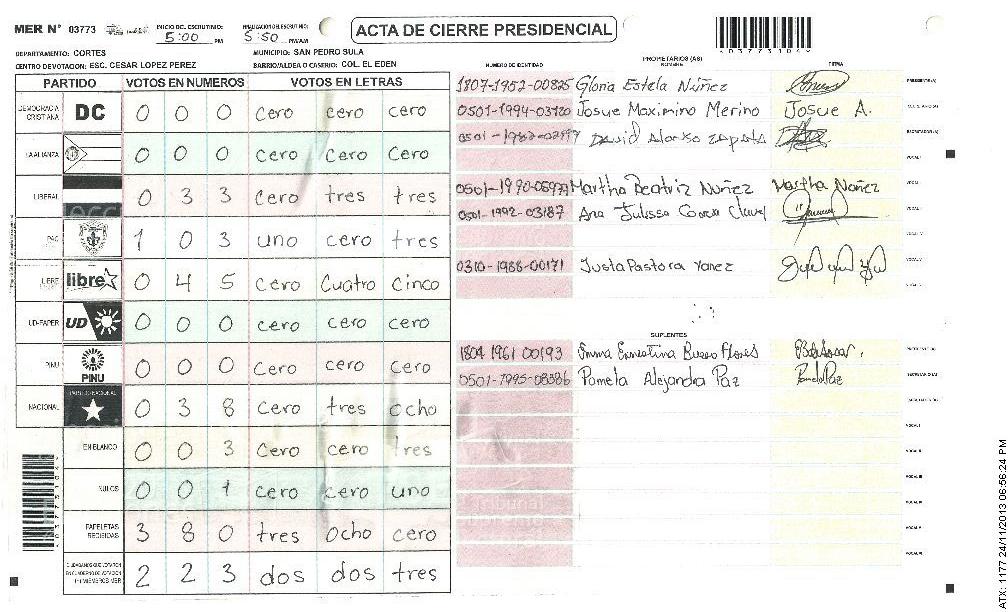 MER N° 03773
INICIO DEL ESCRUTINIO: 5:00 PM
FINALIZACION DEL ESCRUTINIO: 5:50 PM/AM
ACTA DE CIERRE PRESIDENCIAL
DEPARTAMENTO: CORTES
MUNICIPIO: SAN PEDRO SULA
CENTRO DE VOTACION: ESC. CESAR LOPEZ PEREZ
BARRIO/ALDEA O CASERIO: COL. EL EDEN
PARTIDO VOTOS EN NUMEROS VOTOS EN LETRAS
DEMOCRACIA CRISTIANA DC 0 0 0 cero cero cero
LA ALIANZA 0 0 0 cero cero cero
LIBERAL 0 3 3 cero tres tres
PAC 1 0 3 uno cero tres
LIBRE libre 0 4 5 cero cuatro cinco
UD-FAPER UD 0 0 0 cero cero cero
PINU PINU 0 0 0 cero cero cero
NACIONAL PARTIDO NACIONAL 0 3 8 cero tres ocho
EN BLANCO 0 0 3 cero cero tres
NULOS 0 0 1 cero cero uno
PAPELETAS RECIBIDAS 3 8 0 tres ocho cero
CIUDADANOS QUE VOTARON EN CUADERNO DE VOTACION 2 2 3 dos dos tres
PROPIETARIOS (AS)
NUMERO DE IDENTIDAD NOMBRE FIRMA
1807-1952-00825 Gloria Estela Núñez PRESIDENTE(A)
0501-1994-03720 Josue Maximino Merino Josue A. SECRETARIO(A)
David Alonso Zapata ESCRUTADOR(A)
VOCAL I
Martha Beatriz Nuñez Martha Nuñez VOCAL
0501-1992-03187 Ana Julissa VOCAL
VOCAL
0310-1988-00171 Justa Pastora Yanez VOCAL
VOCAL
SUPLENTES
1804 1961 00193 Emma Ernestina Bueso Flores PRESIDENTE(A)
0501-1995-08386 Pamela Alejandra Paz Pamela Paz SECRETARIO(A)
ESCRUTADOR(A)
VOCAL I
VOCAL II
VOCAL III
VOCAL
VOCAL V
VOCAL
ATX: 1177 24/11/2013 06:56:24 PM